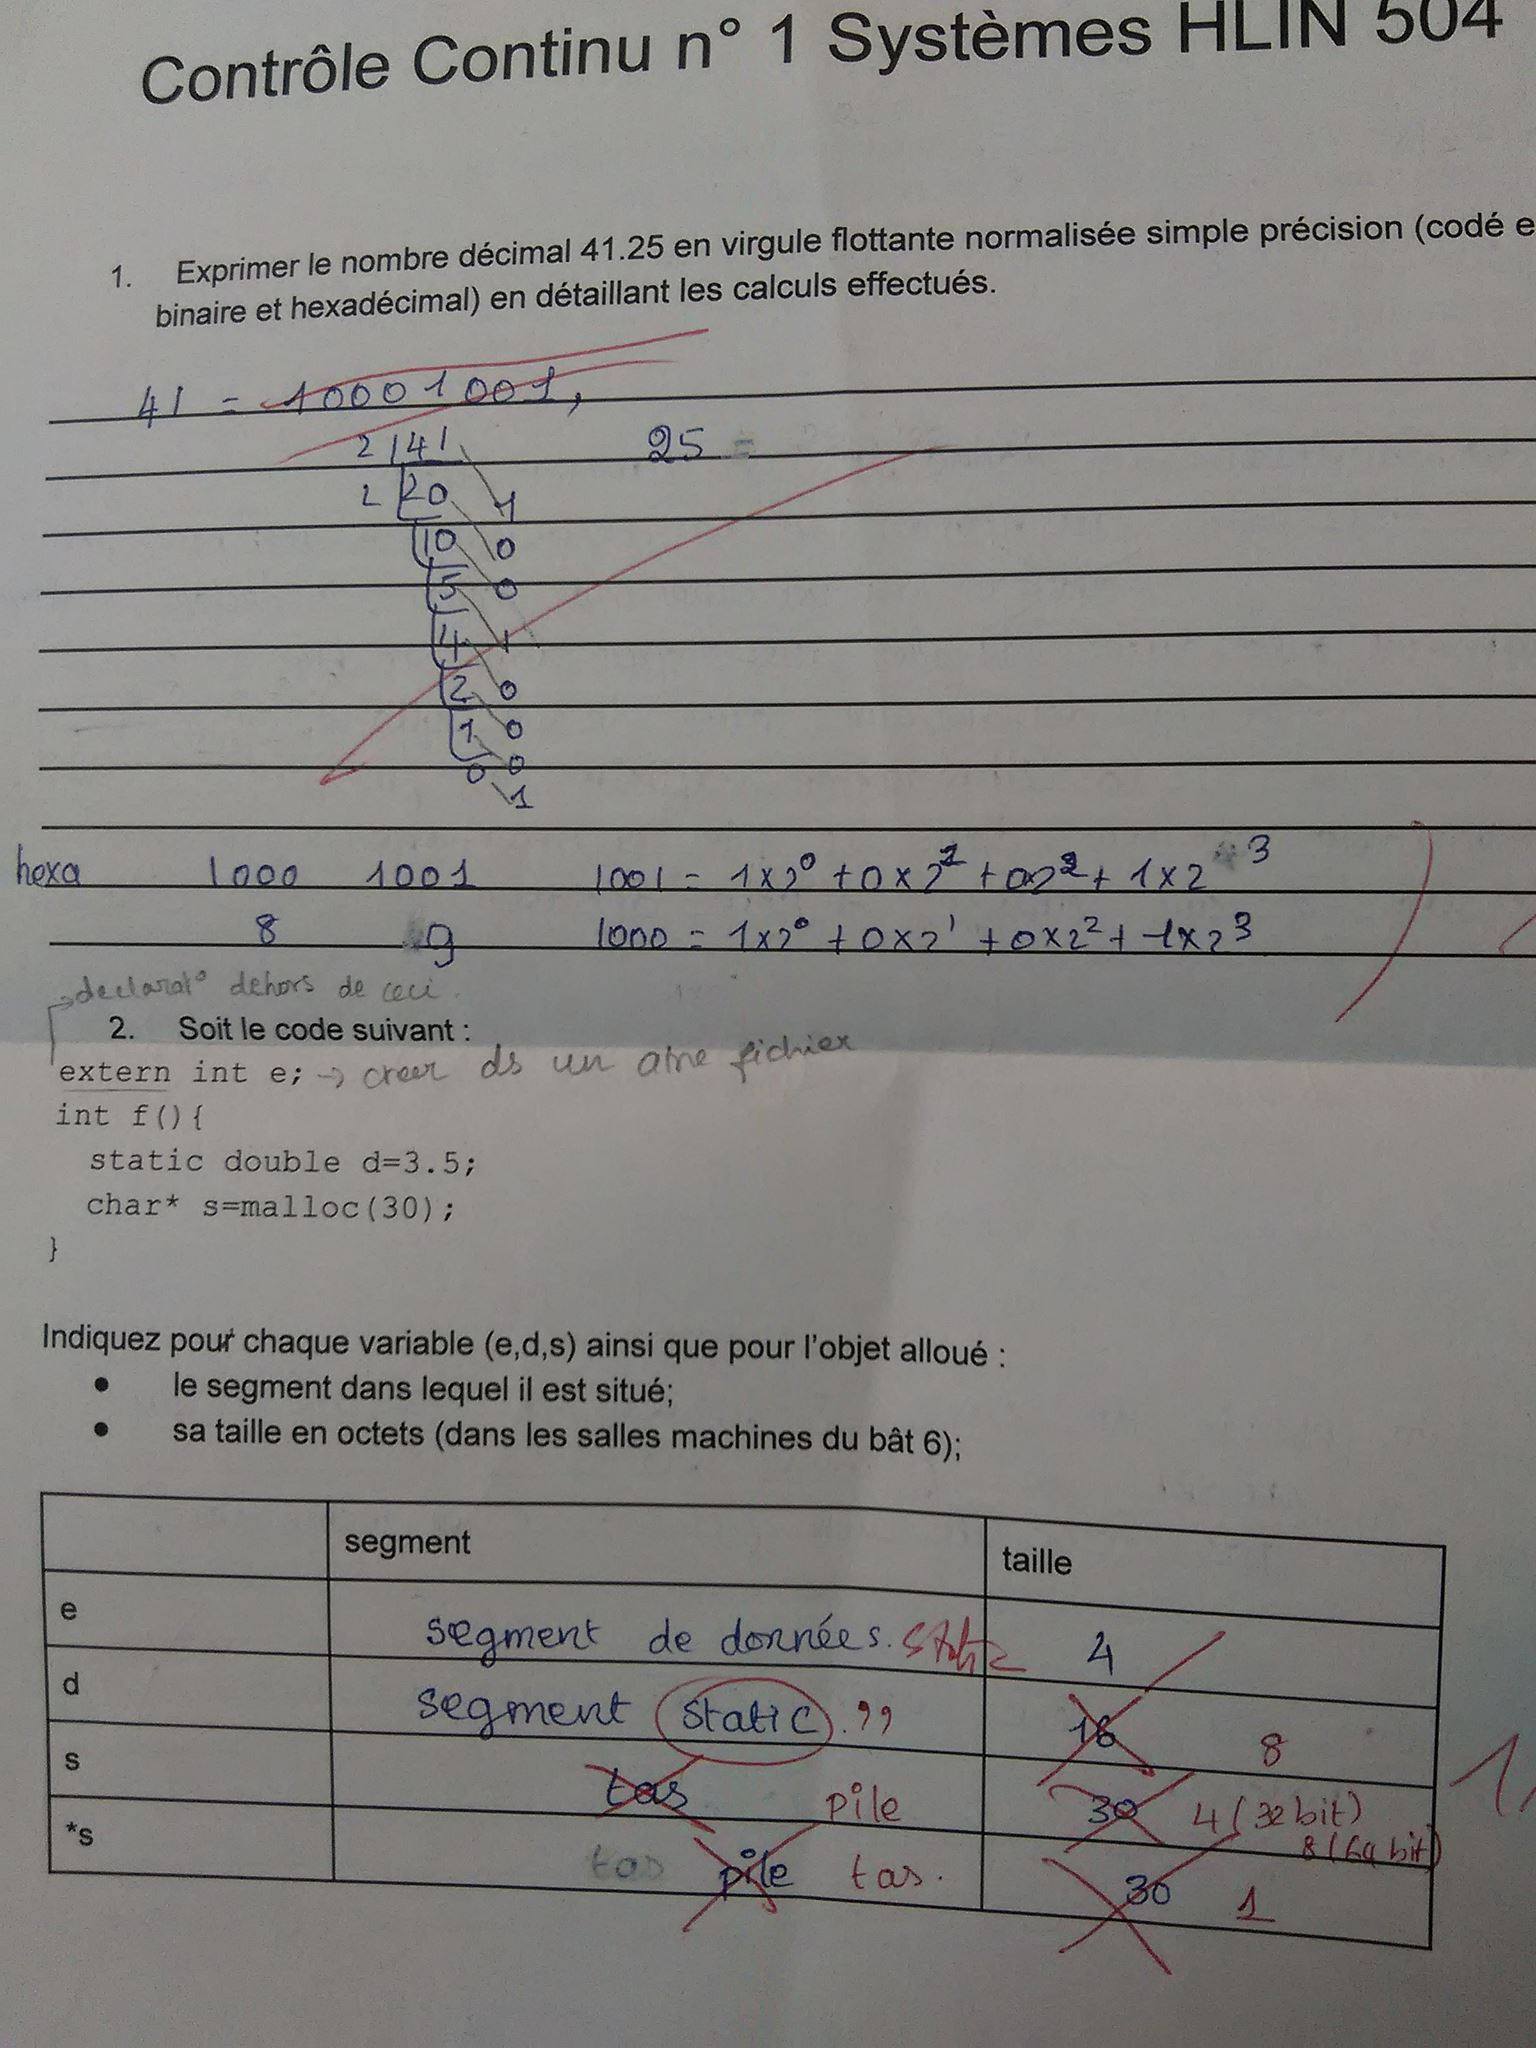 Contrôle Continu n° 1 Systèmes HLIN 504
1. Exprimer le nombre décimal 41.25 en virgule flottante normalisée simple précision (codé e
binaire et hexadécimal) en détaillant les calculs effectués.
41 = 10001001,
2 41 25 =
2 20 1
10 0
5 0
4 1
2 0
1 0
0 0
1
hexa 1000 1001 1001 = 1x2⁰ + 0x2¹ + 0x2² + 1x2³
8 9 1000 = 1x2⁰ + 0x2¹ + 0x2² + 1x2³
→ declarat° dehors de ceci.
2. Soit le code suivant :
extern int e; → creer ds un atre fichier
int f(){
static double d=3.5;
char* s=malloc(30);
}
Indiquez pour chaque variable (e,d,s) ainsi que pour l'objet alloué :
• le segment dans lequel il est situé;
• sa taille en octets (dans les salles machines du bât 6);
segment taille
e segment de données. static 4
d segment static. ,, 16 8
s tas pile 30 4 (32 bit)
8 (64 bit)
*s tas pile tas. 30 1